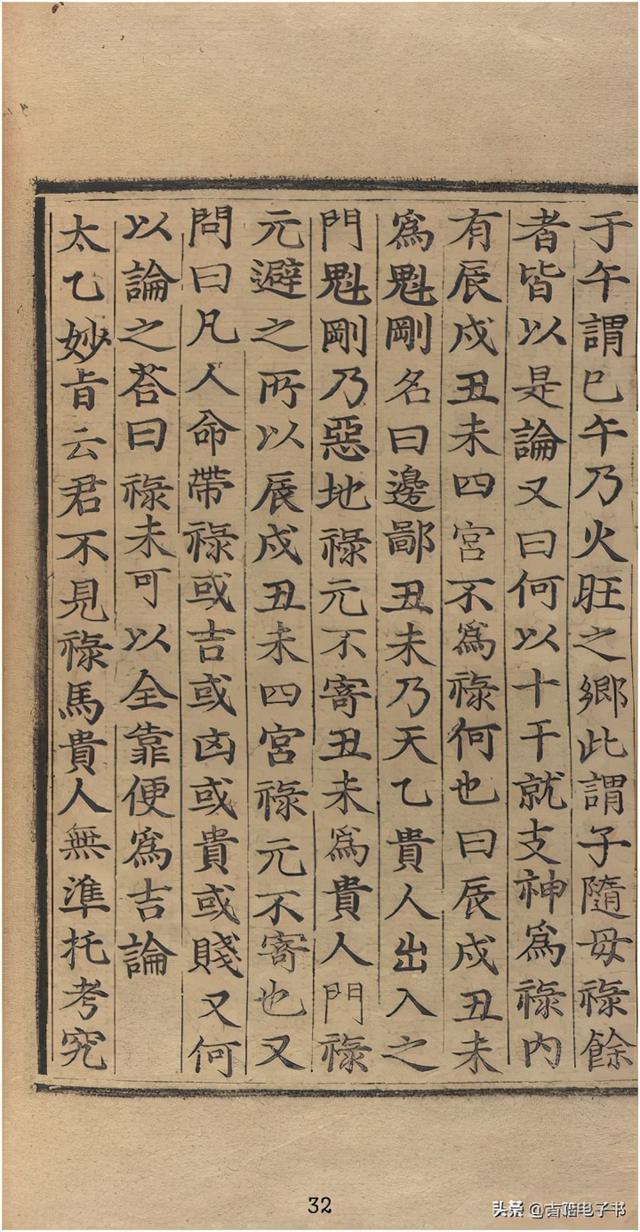 于午謂巳午乃火旺之鄉此謂子隨母祿餘
者皆以是論又曰何以十干就支神為祿內
有辰戍丑未四宮不為祿何也曰辰戍丑未
為魁剛名曰邊鄙丑未乃天乙貴人出入之
門魁剛乃惡地祿元不寄丑未為貴人門祿
元避之所以辰戍丑未四宮祿元不寄也又
問曰凡人命帶祿或吉或凶或貴或賤又何
以論之荅曰祿未可以全靠便為吉論
太乙妙旨云君不見祿馬貴人無準托考究
32
头条 @古籍电子书